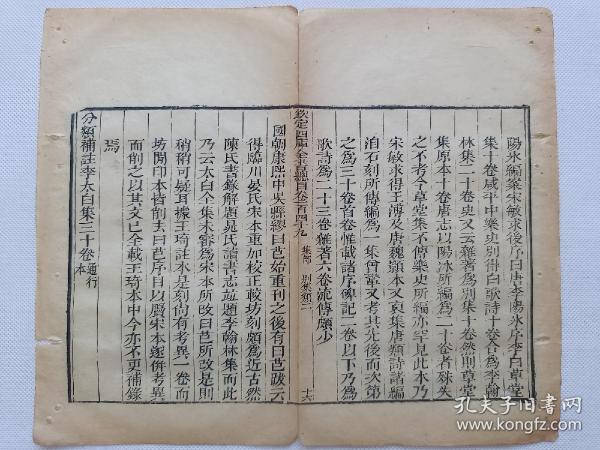 陽氷編纂宋敏求後序曰唐李陽氷序李白草堂
集十卷咸平中樂史別得白歌詩十卷合為李翰
林集二十卷史又云雜著為別集十卷然則草堂
集原本十卷唐志以陽氷所編為二十卷者殊失
之不考今草堂集不傳樂史所編亦罕見此本乃
宋敏求得王溥及唐魏顥本又裒集唐類詩諸編
洎石刻所傳編為一集曾鞏又考其先後而次第
之為三十卷首卷惟載諸序碑記二卷以下乃為
歌詩為二十三卷雜著六卷流傳頗少
欽定四庫全書總目卷一百四十九 集部 別集類二 十六
國朝康熙中吳縣繆曰芑始重刊之後有曰芑跋云
得臨川晏氏宋本重加校正較坊刻頗為近古然
陳氏書錄解題晁氏讀書志並題李翰林集而此
乃云太白全集未審為宋本所改曰芑所改是則
稍稍可疑耳據王琦註本是刻尚有考異一卷而
坊間印本皆削去曰芑序目以贋宋本遂併考異
而削之以其文已全載王琦本中今亦不更補錄
焉
分類補註李太白集三十卷通行本
孔夫子旧书网
www.kongfz.com